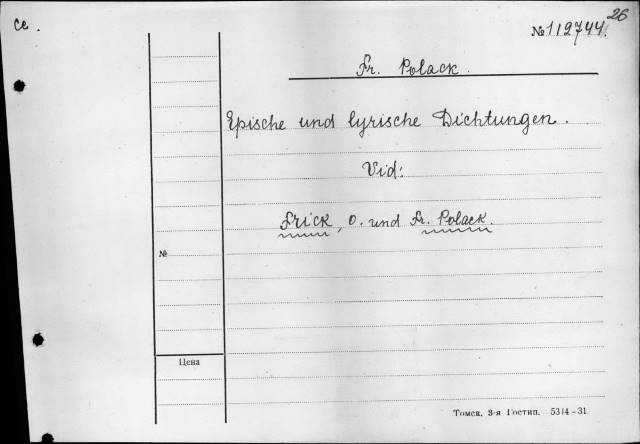 26
Се.
№ 112744.
Fr. Polack.
Epische und lyrische Dichtungen.
Vid:
Frick, O. und Fr. Polack.
№
Цена
Томск. 3-я Гостип. 5314-31